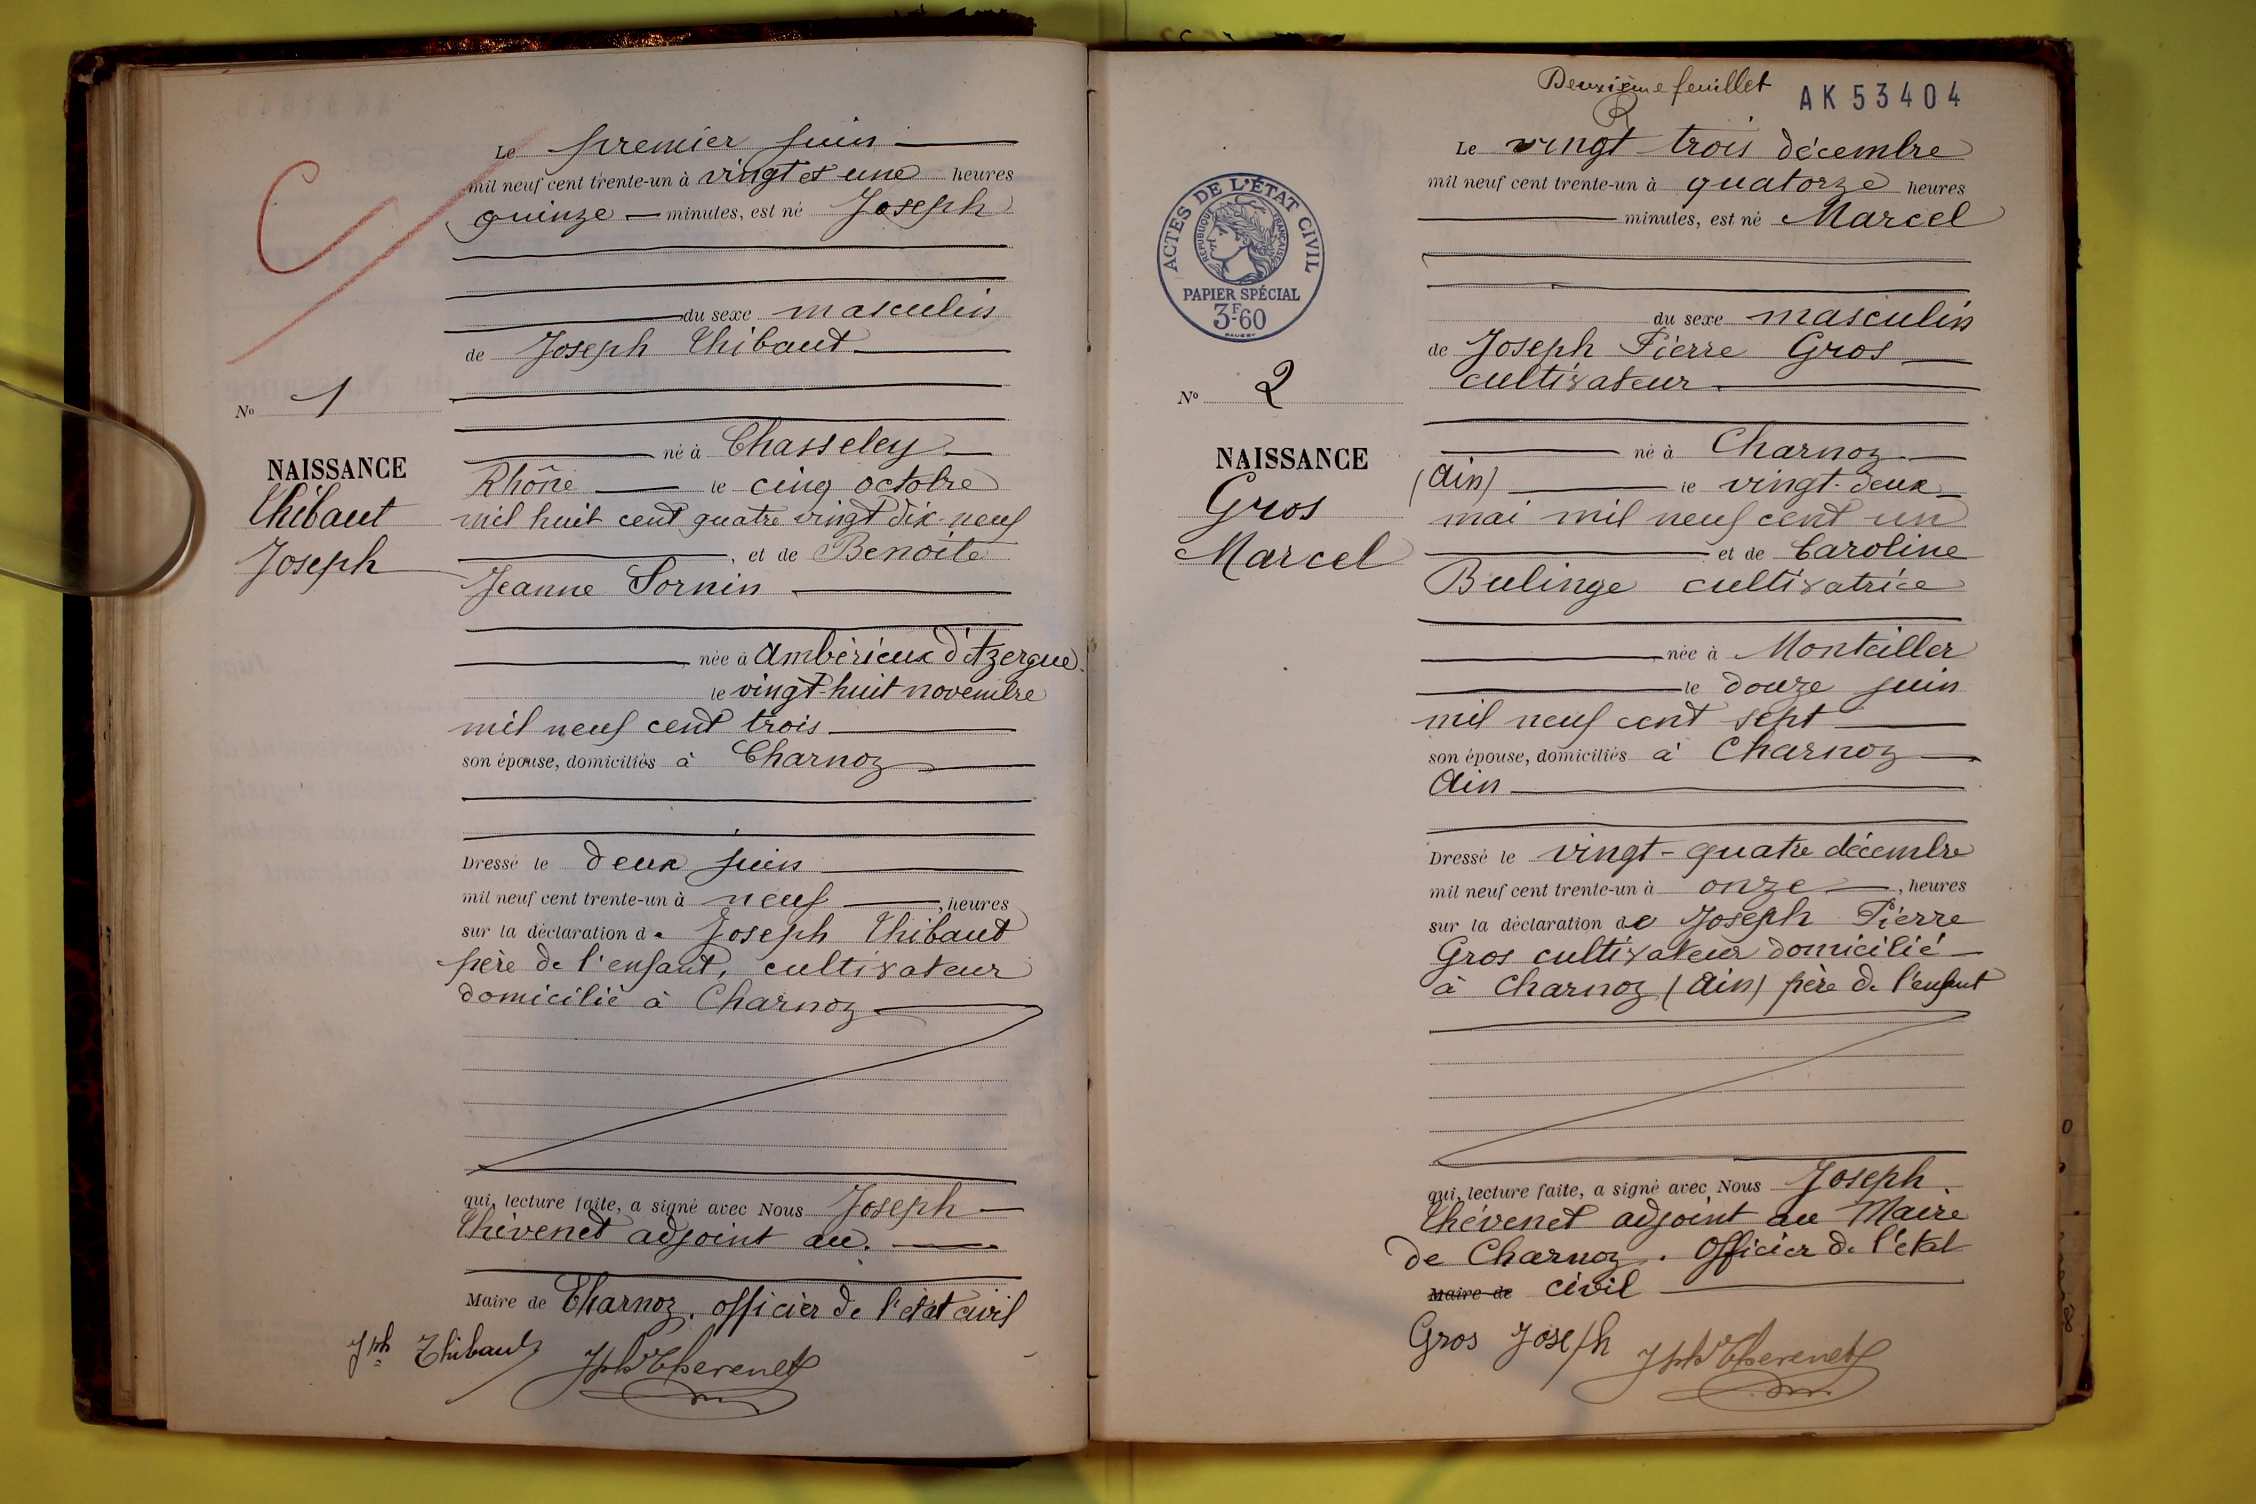 Le premier juin
mil neuf cent trente-un à vingt et une heures
quinze minutes, est né Joseph
du sexe masculin
de Joseph Thibaut
né à Chasseley
Rhône le cinq octobre
mil huit cent quatre vingt dix-neuf
, et de Benoite
Jeanne Sornin
née à Ambérieux d'Azergue
le vingt-huit novembre
mil neuf cent trois
son épouse, domiciliés à Charnoz
Dressé le deux juin
mil neuf cent trente-un à neuf , heures
sur la déclaration de Joseph Thibaut
père de l'enfant, cultivateur
domicilié à Charnoz
qui, lecture faite, a signé avec Nous Joseph
Thévenet adjoint au.
Maire de Charnoz. officier de l'état civil
Jph Thibaut JphThevenet
No 1
NAISSANCE
Thibaut
Joseph
Deuxième feuillet
AK 53404
Le vingt trois décembre
mil neuf cent trente-un à quatorze heures
minutes, est né Marcel
du sexe masculin
de Joseph Pierre Gros
cultivateur
né à Charnoz
(Ain) le vingt-deux
mai mil neuf cent un
et de Caroline
Bulinge cultivatrice
née à Monteiller
le douze juin
mil neuf cent sept
son épouse, domiciliés à Charnoz
Ain
Dressé le vingt-quatre décembre
mil neuf cent trente-un à onze , heures
sur la déclaration de Joseph Pierre
Gros cultivateur domicilié
à Charnoz (Ain) père de l'enfant
qui, lecture faite, a signé avec Nous Joseph
Thévenet adjoint au Maire
de Charnoz. Officier de l'état
Maire de civil
Gros Joseph JphThevenet
ACTES DE L'ÉTAT CIVIL
REPUBLIQUE FRANÇAISE
PAPIER SPÉCIAL
3F60
No 2
NAISSANCE
Gros
Marcel